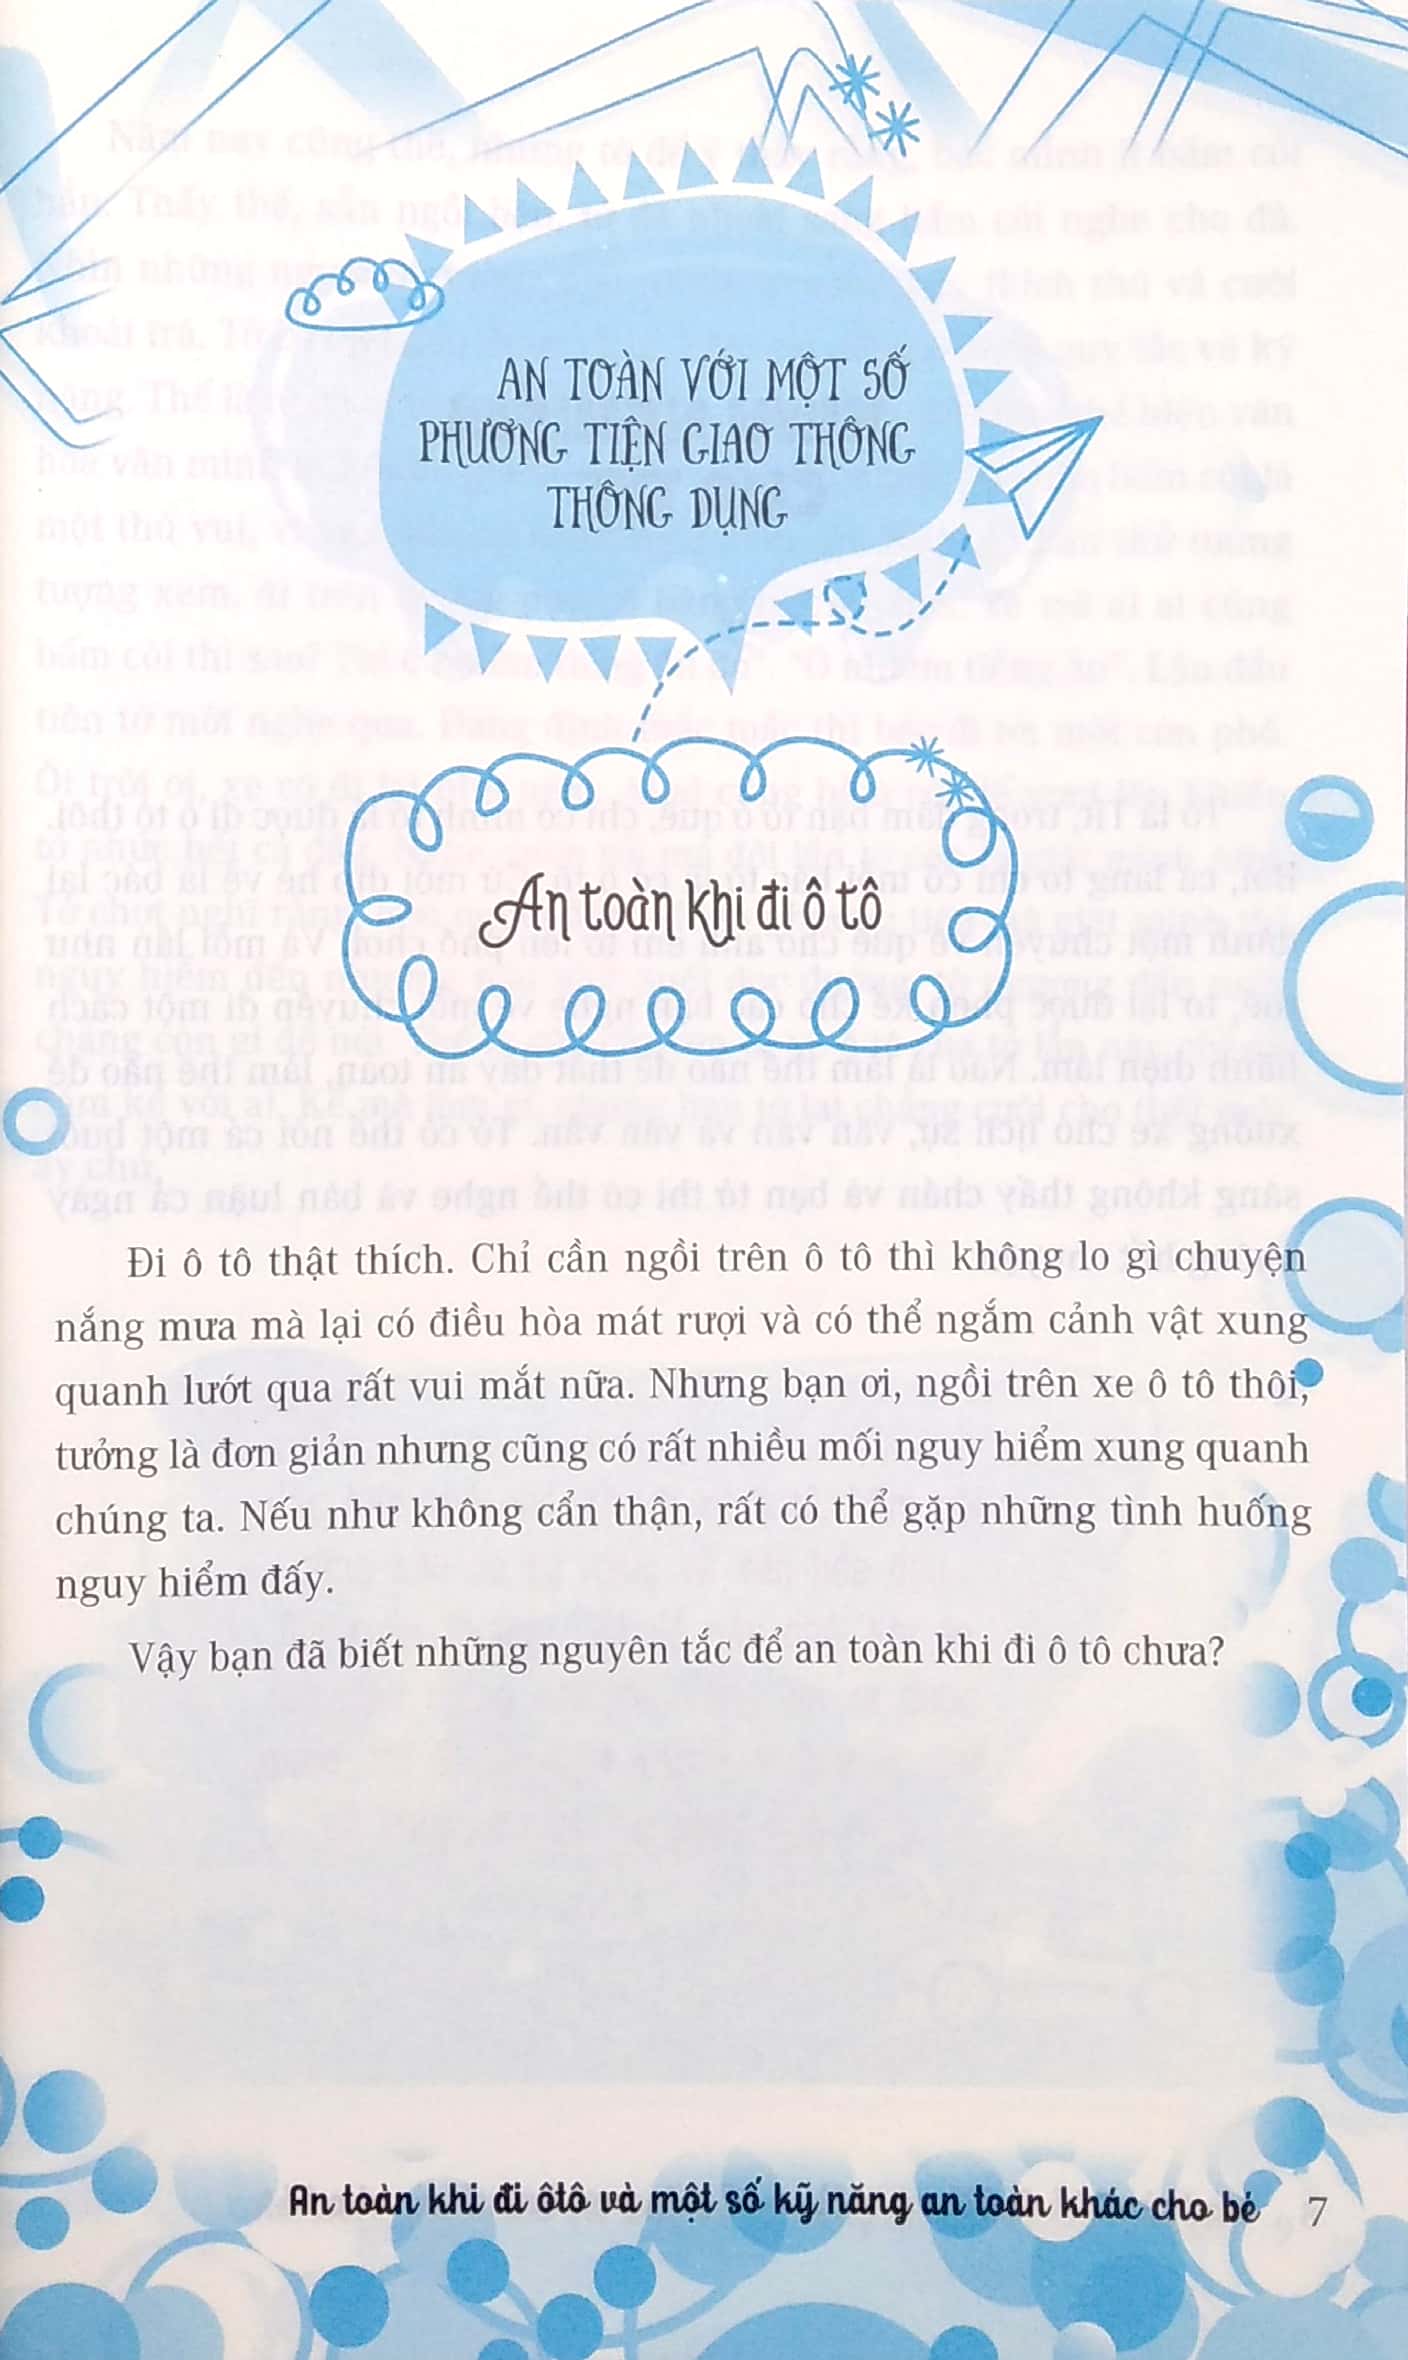 AN TOÀN VỚI MỘT SỐ
PHƯƠNG TIỆN GIAO THÔNG
THÔNG DỤNG
An toàn khi đi ô tô
Đi ô tô thật thích. Chỉ cần ngồi trên ô tô thì không lo gì chuyện
nắng mưa mà lại có điều hòa mát rượi và có thể ngắm cảnh vật xung
quanh lướt qua rất vui mắt nữa. Nhưng bạn ơi, ngồi trên xe ô tô thôi,
tưởng là đơn giản nhưng cũng có rất nhiều mối nguy hiểm xung quanh
chúng ta. Nếu như không cẩn thận, rất có thể gặp những tình huống
nguy hiểm đấy.
Vậy bạn đã biết những nguyên tắc để an toàn khi đi ô tô chưa?
An toàn khi đi ôtô và một số kỹ năng an toàn khác cho bé 7